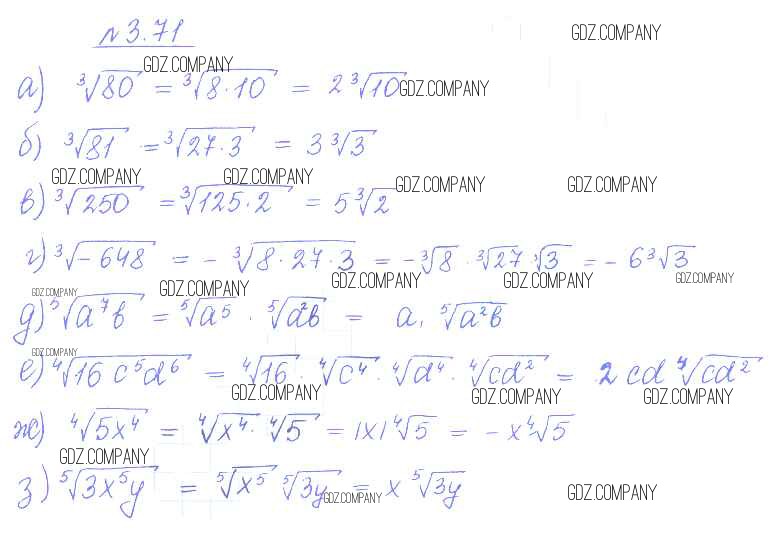 № 3.71
GDZ.COMPANY
GDZ.COMPANY
а) ∛80 = ∛(8·10) = 2∛10 GDZ.COMPANY
б) ∛81 = ∛(27·3) = 3∛3
GDZ.COMPANY GDZ.COMPANY GDZ.COMPANY GDZ.COMPANY
в) ∛250 = ∛(125·2) = 5∛2
г) ∛(-648) = -∛(8·27·3) = -∛8 · ∛27 · ∛3 = -6∛3
GDZ.COMPANY GDZ.COMPANY GDZ.COMPANY GDZ.COMPANY GDZ.COMPANY
д) ⁵√(a⁷b) = ⁵√(a⁵) · ⁵√(a²b) = a · ⁵√(a²b)
GDZ.COMPANY
е) ⁴√(16c⁵d⁶) = ⁴√16 · ⁴√(c⁴) · ⁴√(d⁴) · ⁴√(cd²) = 2cd ⁴√(cd²)
GDZ.COMPANY GDZ.COMPANY GDZ.COMPANY
ж) ⁴√(5x⁴) = ⁴√(x⁴) · ⁴√5 = |x| ⁴√5 = -x ⁴√5
GDZ.COMPANY
з) ⁵√(3x⁵y) = ⁵√(x⁵) ⁵√(3y) = x ⁵√(3y)
GDZ.COMPANY GDZ.COMPANY